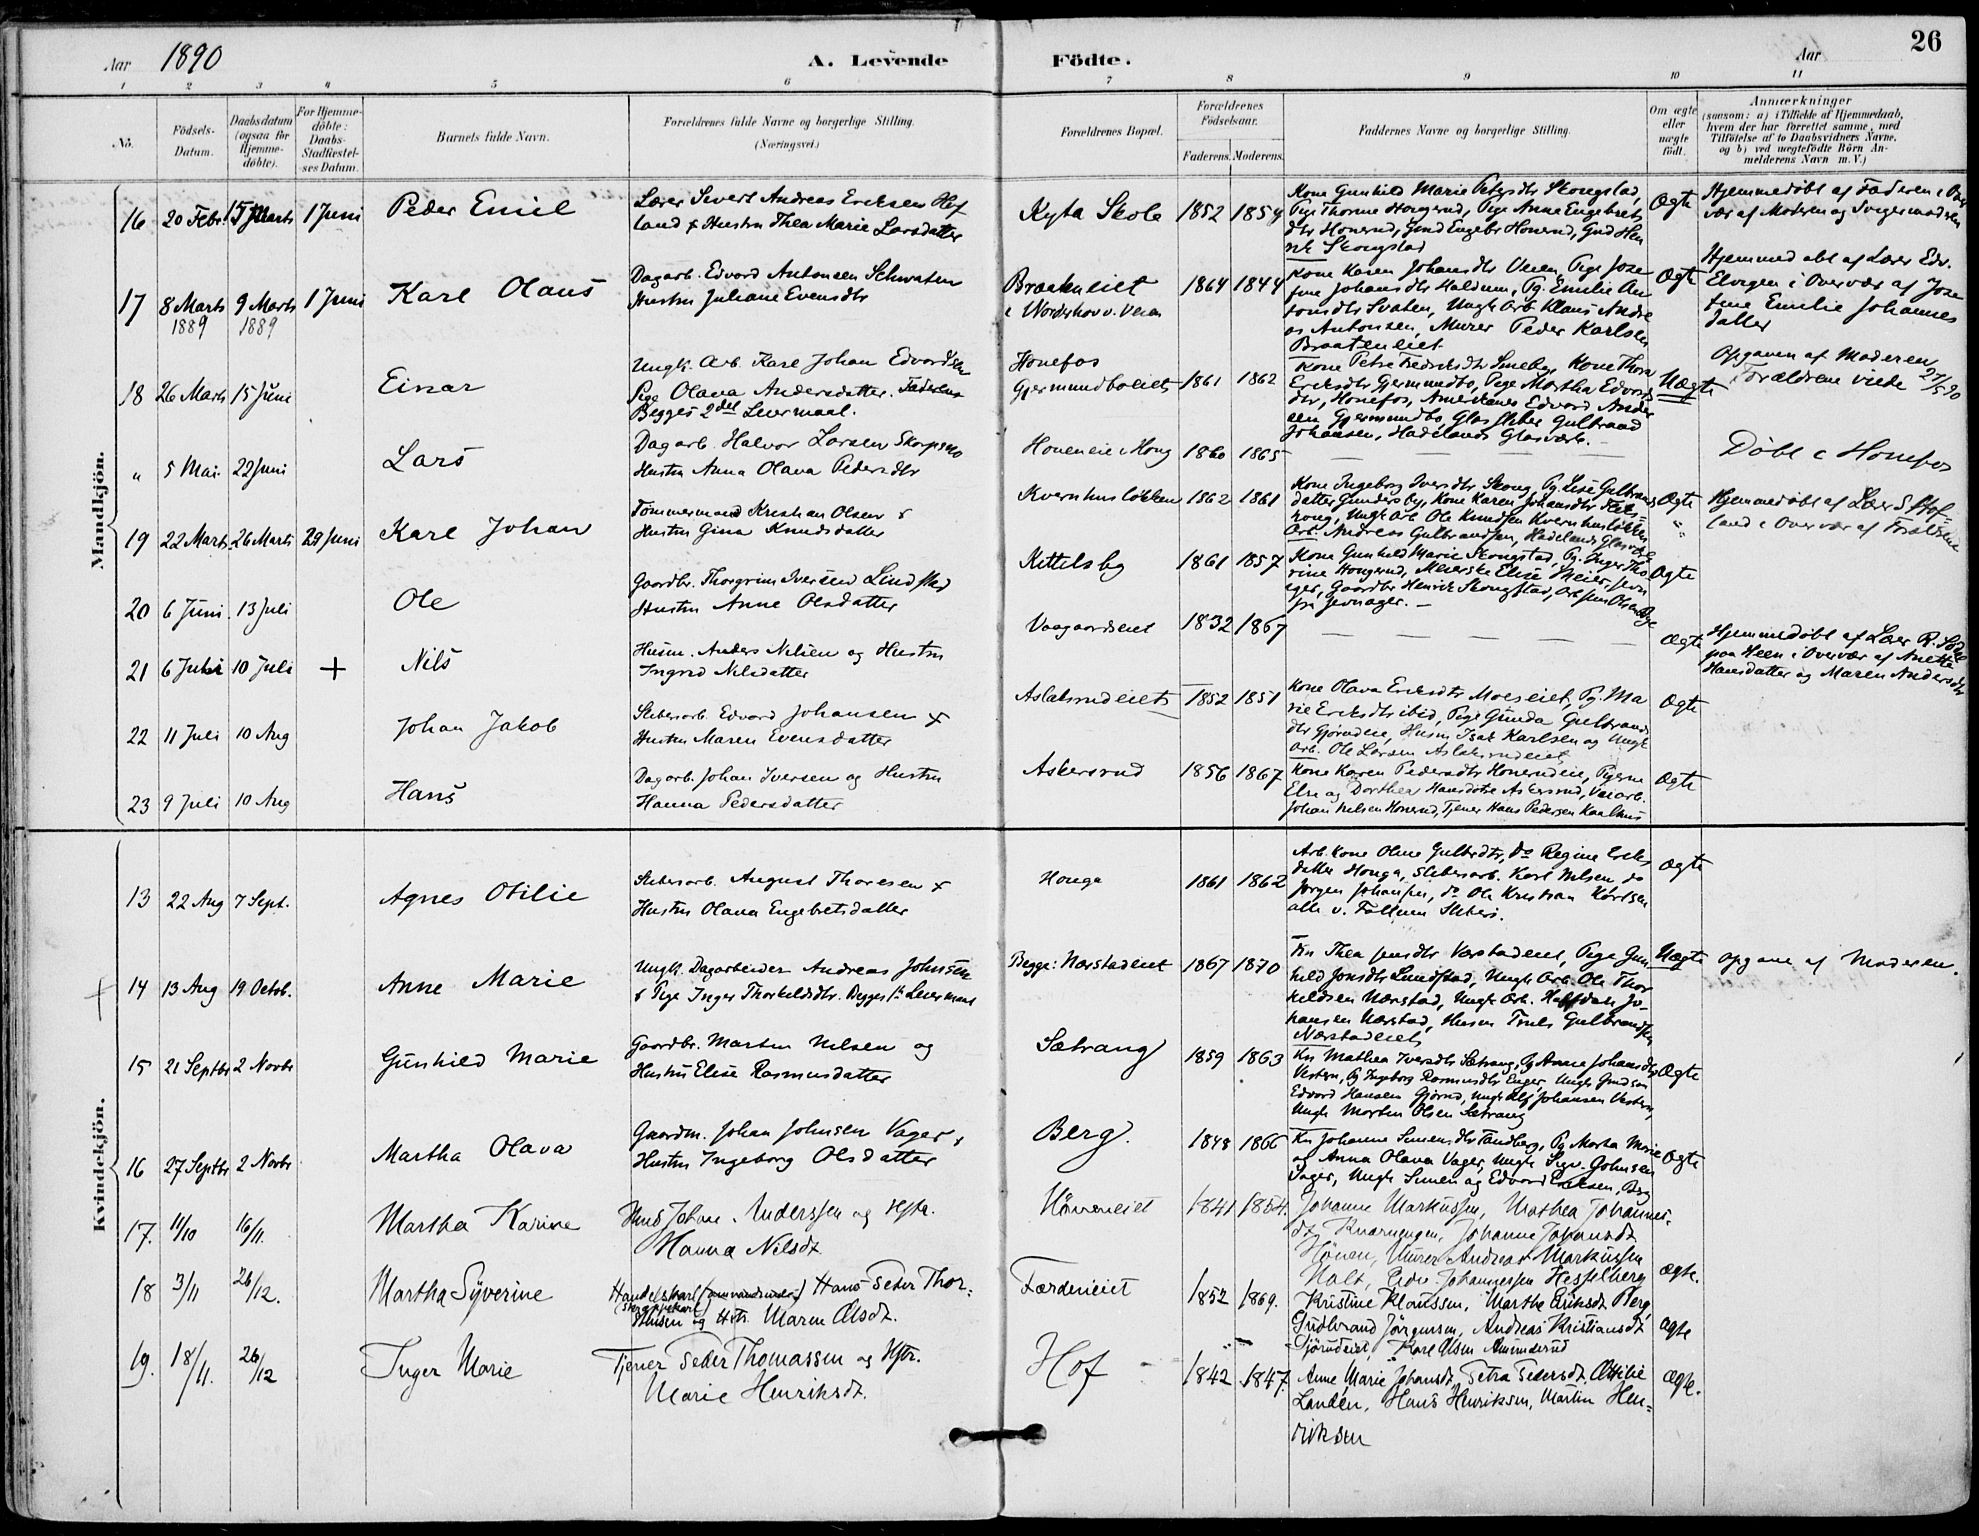 Aar 1890
A. Levende Födte.
Aar
26
1 2 3 4 5 6 7 8 9 10 11
No.
Födsels-Datum.
Daabsdatum (ogsaa for Hjemme-döbte).
For Hjemme-döbte: Daabs-Stadfæstel-ses Datum.
Barnets fulde Navn.
Forældrenes fulde Navne og borgerlige Stilling.
(Næringsvei.)
Forældrenes Bopæl.
Forældrenes Födselsaar.
Faderens. Moderens.
Faddernes Navne og borgerlige Stilling.
Om ægte eller uægte födt.
Anmærkninger
(saasom: a) i Tilfælde af Hjemmedaab,
hvem der har forrettet samme, med
Tilföielse af to Daabsvidners Navne,
og b) ved uægtefödte Börn An-
melderens Navn m. V.)
Mandkjön.
16 20 Febr. 15 Marts 1 Juni Peder Emil
Lærer Sivert Andreas Ericksen Hof
land & Hustru Thea Marie Larsdatter
Kyta Skole 1852 1854
Kone Gunhild Marie Petersdtr Skongstad,
Pige Thorine Hougerud, Pige Anne Engebrets
dtr Honerud, Gmd Engebr Honerud, Gmd Hen
rik Skongstad
Ægte
Hjemmedöbt af Faderen i Over
vær af Moderen og Svigermoderen
17 8 Marts 1889 9 Marts 1889 1 Juni Karl Olaus
Dagarb. Edvard Antonsen Schvaten
Hustru Juliane Evensdtr
Braateneiet
i Norderhov v. Veien
1864 1844
Kone Karen Johansdtr Veien, Pige Jose
fine Johansdtr Haldum, Pg. Emilie An
tonsdtr Svaten, Ungk Arb Klaus Andre
as Antonsen, Murer Peder Karlsen
Braateneiet
Ægte
Hjemmedöbt af Lærer Edv.
Elvigen i Overvær af Jose
fine Emilie Johannes
datter
18 26 Marts 15 Juni Einar
Ungk. Arb. Karl Johan Edvardsen
Pige Olava Andersdatter. Faderens
Begges 2det Leiermaal.
Honefos
Gjermundboeiet 1861 1862
Kone Petra Fredriksdtr Smeby, Kone Thora
Eriksdtr Germundbo, Pige Martha Edvards
dtr, Honefos, Amerikaner Edvard Ander
sen Gjermundbo, Glassliber Gulbrand
Johansen, Hadelands Glasværk. —
Uægte
Opgaven af Moderen
Forældrene viede 27/5 90
" 5 Mai 22 Juni Lars
Dagarb. Halvor Larsen Skarpsno
Hustru Anna Olava Pedersdtr
Honeneie i Houg 1860 1865
— — — — —
Döbt i Honefos
19 22 Marts 26 Marts 29 Juni Karl Johan
Tömmermand Kristian Olsen &
Hustru Gina Knudsdatter
Kvernhuslökken 1862 1861
Kone Ingeborg Iversdtr Skong, Pg. Lise Gulbrands
datter Gundersby, Kone Karen Johansdtr
Ungk Arb Ole Knudsen Kvernhuslökken
Arb. Andreas Gulbrandsen, Hadelands Glasværk
Ægte
"
Hjemmedöbt af Lærer S Hof-
land i Overvær af Forældrene
20 6 Juni 13 Juli Ole
Gaardbr. Thorgrim Iversen Lindstad
Hustru Anne Olsdatter
Kittelsby 1861 1857
Kone Gunhild Marie Skongstad, Pg. Inger Tho
rine Hougerud, Meierske Elise Meier, Jevn
ager, Gaardbr Henrik Skongstad,
fra Jevnager. —
Ægte
21 6 Juli 10 Juli + Nils
Husm. Anders Nilsen og Hustru
Ingrid Nilsdatter
Vaagaardseiet 1832 1867
— — — — —
Ægte
Hjemmedöbt af Lærer R.
paa Heen i Overvær af Anette
Hansdatter og Maren Andersdtr
22 11 Juli 10 Aug Johan Jakob
Sliberiarb. Edvard Johansen &
Hustru Maren Evensdatter
Aslaksrudeiet 1852 1851
Kone Olava Eriksdtr Moeseiet, Pg. Ma
rie Eriksdtr ibid, Pige Gunda Gulbrands
dtr Gjörudeie, Husm Isak Karlsen og Ungk
Arb. Ole Larsen Aslaksrudeiet
Ægte
23 9 Juli 10 Aug Hans
Dagarb. Johan Iversen og Hustru
Hanna Pedersdatter
Askersrud 1856 1867
Kone Karen Pedersdtr Honerudeie, Pigerne
Else og Dorthea Hansdotre Askersrud, Veiarb.
Johan Nilsen Honerud, Tjener Hans Pedersen Kaalhus
Ægte
Kvindekjön.
13 22 Aug 7 Sept. Agnes Otilie
Sliberiarb. August Thoresen &
Hustru Olava Engebretsdatter
Honga 1861 1862
Arb. kone Oline Gulbrdtr, do Regine Eriks
datter Honga, Sliberiarb. Karl Nilsen do
Jörgen Johansen, do Ole Kristian
alle v. Follum Sliberi.
Ægte
14 13 Aug 19 Octob. Anne Marie
Ungk. Dagarbeider Andreas Johnsen
& Pige Inger Thorkildsdtr. Begges 1ste Leiermaal
Begge: Nærstadeiet 1867 1870
Kn Thea Jensdtr Værstadeiet, Pige Gun
hild Jonsdtr Lundstad, Ungk Arb. Ole Thor
kildsen Nærstad, Ungk Arb. Halfdan Jo
hansen Nærstad, Husm Truls Gulbrandsen
Nærstadeiet
Uægte
Opgave af Moderen.
15 21 Septbr 2 Novbr Gunhild Marie
Gaardbr. Martin Nilsen og
Hustru Elise Rasmusdatter
Sætrang 1859 1863
Kn Mathea Iversdtr Sætrang, Pg Anne Johansdtr
Vestern, Pg Ingeborg Rasmusdtr Enger, Ungk Gmdsøn
Edvard Hansen Gjörud, Ungk Alf Johansen Vestern,
Ungk Morten Olsen Sætrang
Ægte
16 27 Septbr 2 Novbr Martha Olava
Gaardm. Johan Johnsen Vager &
Hustru Ingeborg Olsdatter
Berg. 1848 1866
Kn Johanne Simensdtr Tandberg, Pg Marta Marie
og Anna Olava Vager, Ungk Sigv. Johnsen
Vager, Ungk Simen og Edvard Eriksen, Berg
Ægte
17. 11/10 16/11. Martha Karine
Hmd Johan Anderssen og Hstr.
Hanna Nilsdt.
Höneneiet 1841 1854.
Johanne Markussen, Mathea Johannes-
dt. Kvarnengen, Johanne Johansdt
Hönen, Murer Andreas Markussen
Holt, Peder Johannessen Hesselberg
Ægte.
18 3/11 26/12. Martha Syverine
Handelskarl (omvandrende) Hans Peder Thor-
(skræppekarl)
stensen og Hstr. Maren Olsdt.
Færdeneiet 1852 1869.
Kristine Klaussen, Marthe Eriksdt Berg,
Gudbrand Jörgensen, Andreas Kristiansdt
Gjörudeiet, Karl Olsen Amundsrud
ægte
19. 18/11. 26/12 Inger Marie
Tjener Peder Thomassen og Hstr.
Marie Henriksdt.
Hof 1842 1847.
Anne Marie Johansdt. Petra Pedersdt. Ottilie
Landen, Hans Henriksen, Martin Hen-
riksen
ægte.